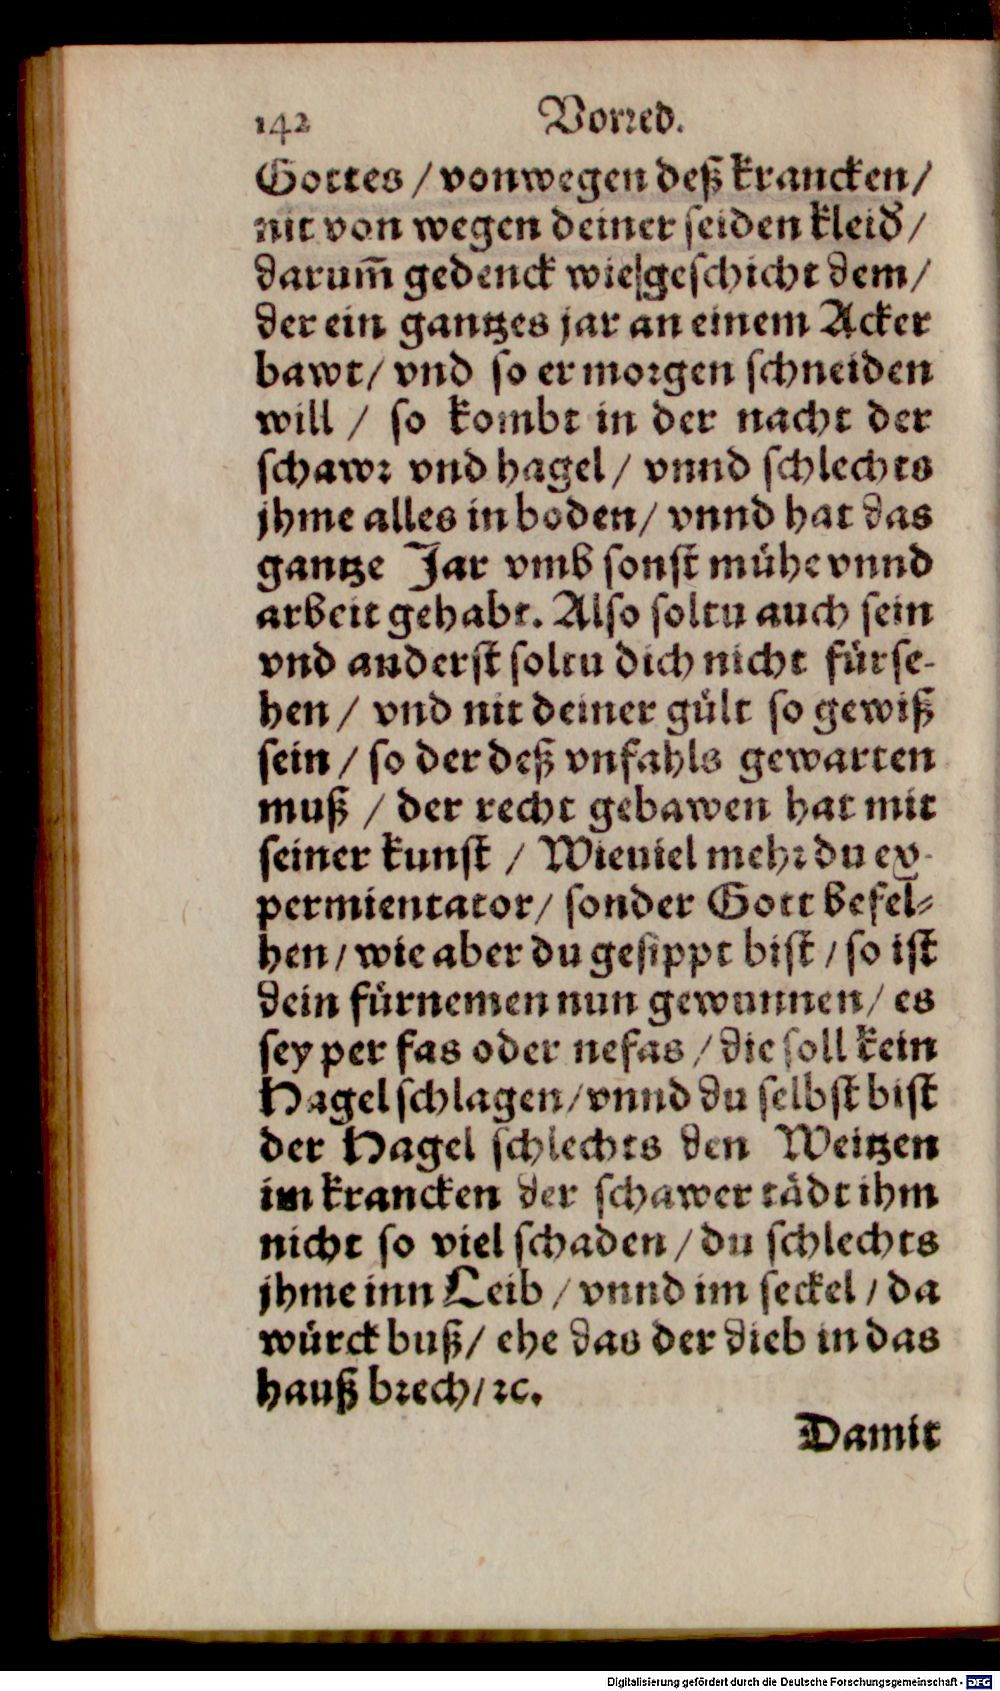 142 Vorred.
Gottes / vonwegen deß krancken /
nit von wegen deiner seiden kleid /
darum̄ gedenck wie geschicht dem /
der ein gantzes jar an einem Acker
bawt / vnd so er morgen schneiden
will / so kombt in der nacht der
schawr vnd hagel / vnnd schlechts
jhme alles in boden / vnnd hat das
gantze Jar vmb sonst mühe vnnd
arbeit gehabt. Also soltu auch sein
vnd anderst soltu dich nicht fürse-
hen / vnd nit deiner gült so gewiß
sein / so der deß vnfahls gewarten
muß / der recht gebawen hat mit
seiner kunst / Wieuiel mehr du ex-
permientator / sonder Gott befel-
hen / wie aber du gesippt bist / so ist
dein fürnemen nun gewunnen / es
sey per fas oder nefas / die soll kein
Hagel schlagen / vnnd du selbst bist
der Hagel schlechts den Weitzen
im krancken der schawer tädt ihm
nicht so viel schaden / du schlechts
jhme inn Leib / vnnd im seckel / da
würck buß / ehe das der dieb in das
hauß brech / ꝛc.
Damit
Digitalisierung gefördert durch die Deutsche Forschungsgemeinschaft - DFG